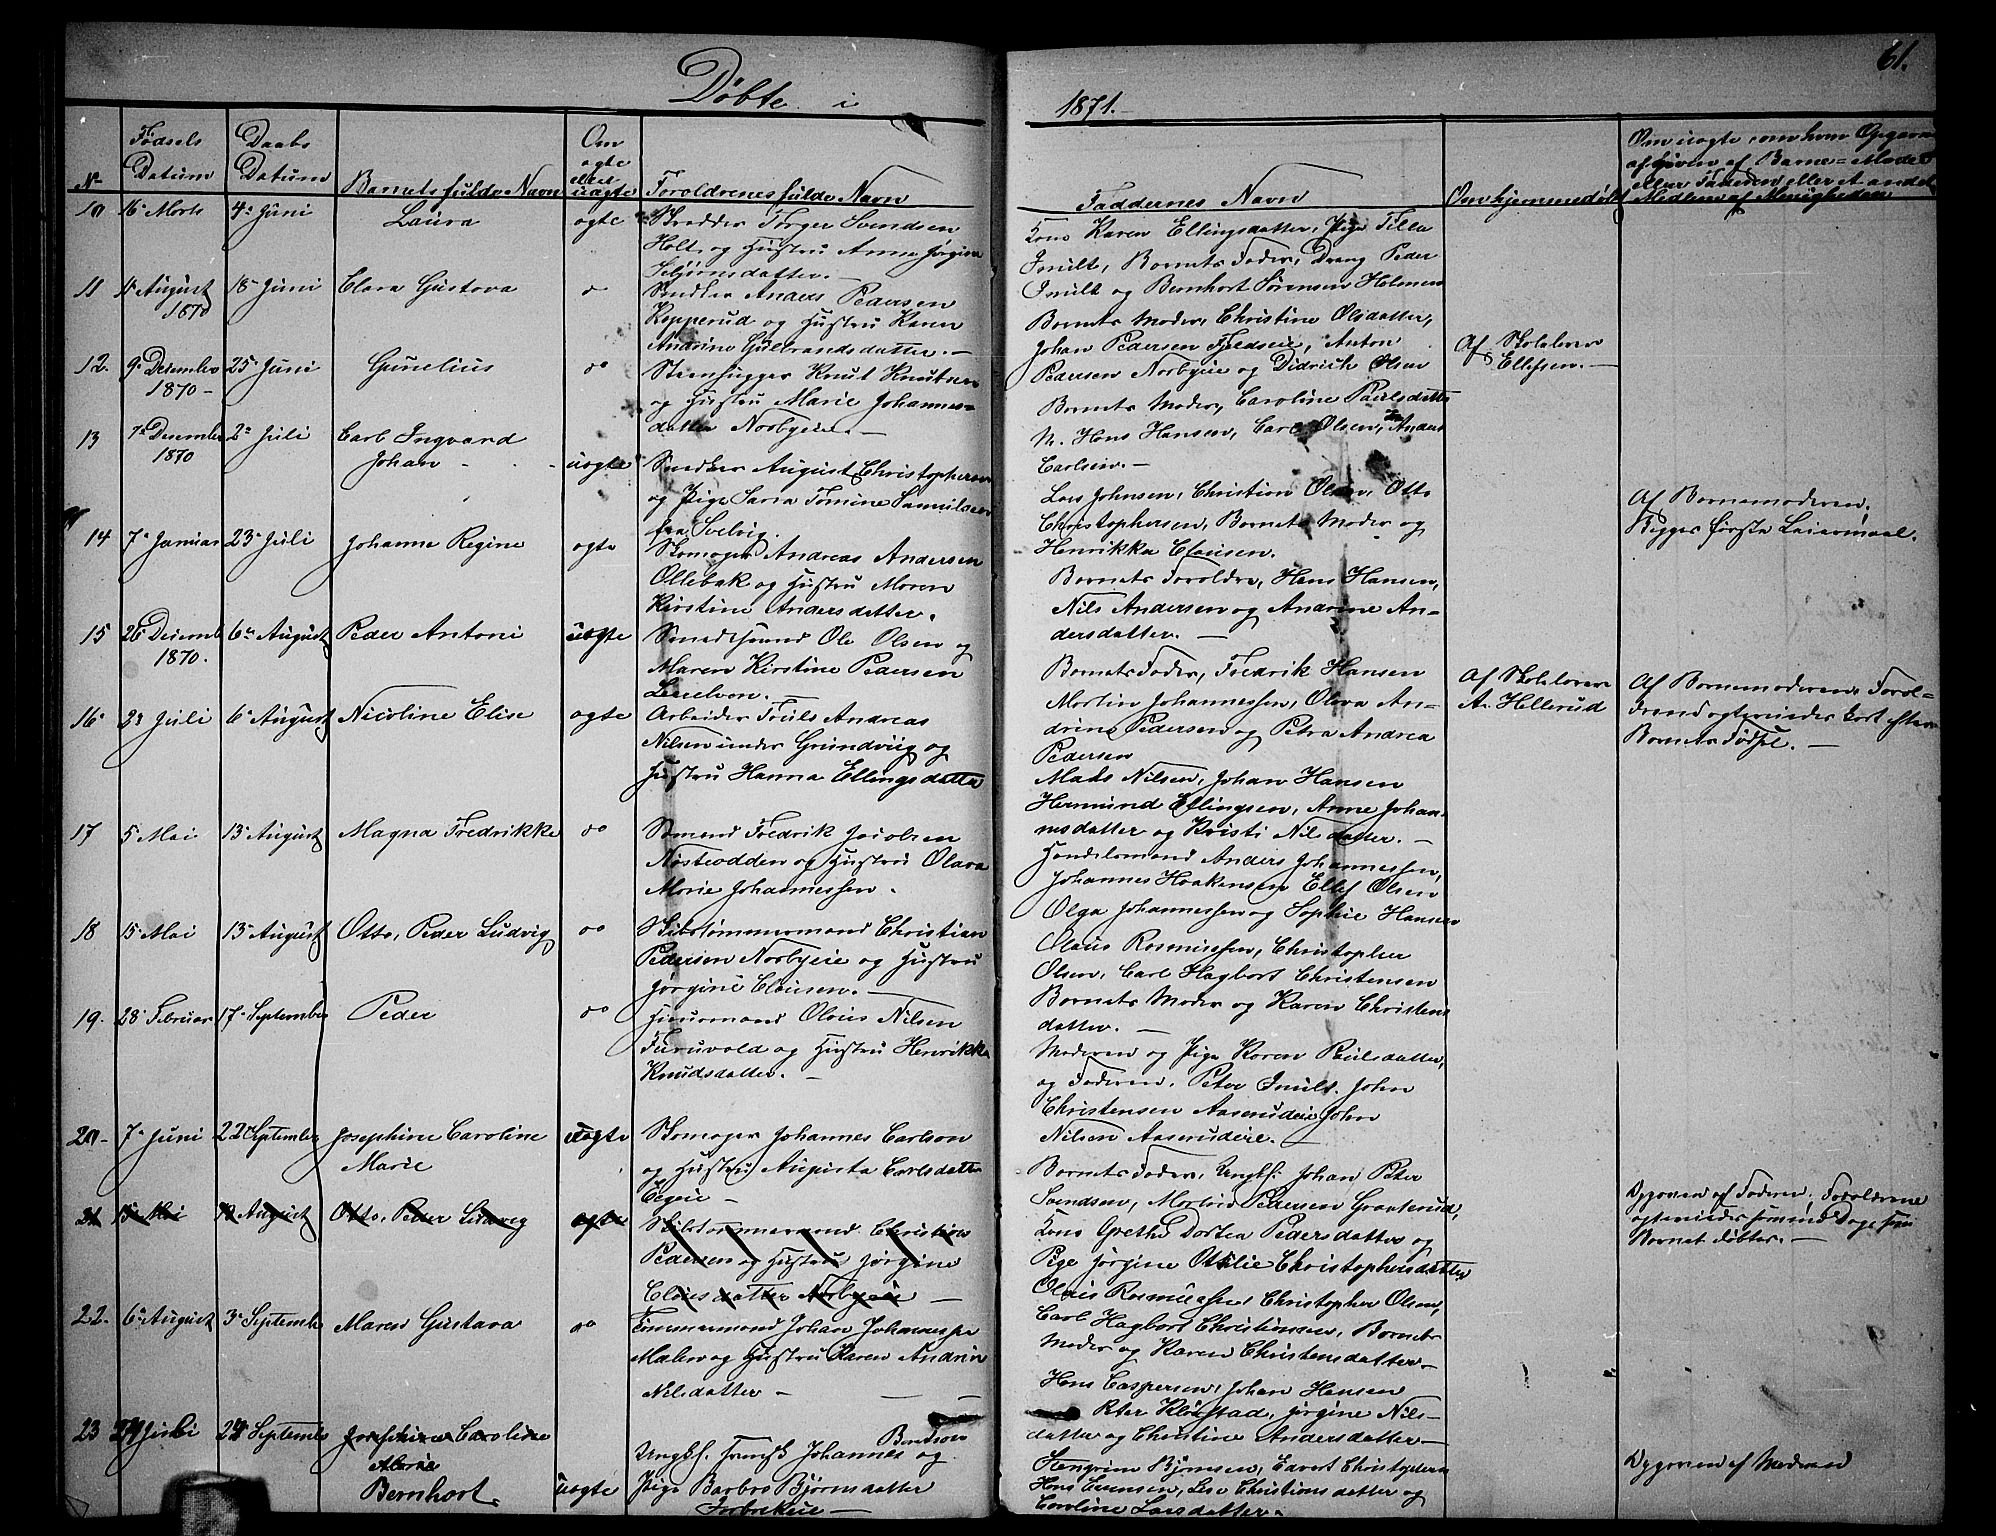 Døbte i
1871.
61.
No
Fødsels
Datum
Daabs
Datum
Barnets fulde Navn
Om
ægte
eller
uægte
Forældrenes fulde Navn
Faddernes Navn
Om hjemmedøbt
Om uægte, om hvem Opgaven
er given af Barne-Moder
eller Faderen eller et andet
Medlem af Menigheden
10 16 Marts 4de Juni Laura ægte Skrædder Torger Svendsen
Holt og Hustru Anne Jørgine
datter.
Kone Karen Ellingsdatter, Pige
Barnets Fader, Dreng Peder
og Bernhart Sørensen Holmen
11 August 1870 18 Juni Clara Gustava Snedker Anders Pedersen
Kopperud og Hustru Karen
Andrine Gulbrandsdatter.
Barnets Moder, Christine Olsdatter,
Johan Pedersen Fjeldseie, Anton
Pedersen Norbyeie og Didrich Olsen
12. 9 Desember 1870 25 Juni Gunelius Steenhugger Knut Knutsen
og Hustru Marie Johannes-
datter Norbyeie.
Barnets Moder, Caroline Paulsdatter
Hans Hansen, Carl Olsen, Anders
Carlsen.
Af Skolelærer
Ellefsen.
13 7de Desember 1870 2 Juli Carl Ingvard
Johan uægte Snedker August Christophersen
og Pige Tomine
fra Svelvig.
Lars Johnsen, Christian Olsen, Otto
Christophersen, Barnets Moder og
Henrikka Clausen.
Af Barnemoderen,
Begges første Leiermaal.
14 7 Januar 23 Juli Johanne Regine ægte Skomager Andreas Andersen
Ollebak og Hustru Maren
Kirstine Andersdatter.
Barnets Forældre, Hans Hansen,
Nils Andersen og Andrine An-
dersdatter.
15 26 Desemb 1870. 6 August Peder Antoni uægte Ole Olsen og
Maren Kirstine Pedersen
Barnets Fader, Fredrik Hansen
Martin Johannessen, Olava An-
drine Pedersen og Petra Andrea
Pedersen
Af Skolelærer
A. Hellerud
Af Barnemoderen. Foræl-
drene ægtevies kort efter
Barnets Fødsel.
16 23 Juli 6 August Nicoline Elise ægte Arbeider Truls Andreas
Nilsen under Grundvig og
Hustru Hanna Ellingsdatter
Mads Nilsen, Johan Hansen
Hermund Ellingsen, Anne Johan-
nesdatter og Kristi Nilsdatter.
17 5 Mai 13 August Magna Fredrikke do Sømand Fredrik Jacobsen
Næsteodden og Hustru Olava
Marie Johannessen.
Handelsmand Anders Johannessen,
Johannes Haakensen Ellef Olsen
Olga Johannessen og Sophie Hansen
18 15 Mai 13 August Otto, Peder Ludvig do Skibstømmermand Christian
Pedersen Norbyeie og Hustru
Jørgine Clausen.
Olaus Rasmussen, Christopher
Olsen, Carl Hagbart Christensen
Barnets Moder og Karen Christens
datter.
19. 28 Februar 17 September Peder do Huusmand Olaus Nilsen
Furuvold og Hustru Henrikke
Knudsdatter.
Moderen og Pige Karen Paulsdatter,
og Faderen, Peter John
Christensen Aaserudeie John
Nilsen Aaserudeie.
20. 7 Juni 22 September Josephine Caroline
Marie uægte Skomager Johannes Carlson
og Hustru Augusta Carlsdatter
Egeeie
Barnets Fader, Ungk. Johan Peter
Svendsen, Martin Pedersen Granterud,
Kone Grethe Dortea Pedersdatter og
Pige Jørgine Otilie Christophersdatter
Opgiven af Faderen. Forældrene
ægtevies samme Dag som
Barnet døbtes.
21 15 Mai 13 August Otto, Peder Ludvig ægte Skibstømmermand Christian
Pedersen og Hustru Jørgine
Clausdatter Norbyeie
Olaus Rasmussen Christopher Olsen,
Carl Hagbart Christensen, Barnets
Moder og Karen Christensdatter
22. 6 August 3 September Maren Gustava do Timmermand Johan Johannessen
og Hustru Karen Andrine
Nilsdatter
Hans Caspersen, Johan Hansen
Peter Klaustad, Jørgine Nils-
datter og Christine Andersdatter
23 24 Juli 24 September Josephine Caroline
Marie
Bernhart uægte Ungk. Johannes Berntsen og
Pige Barbro Bjørnsdatter
Stengrim Bjørnsen, Edvart Christophersen
Hans Evensen, Lise Christiansdatter og
Caroline Larsdatter.
Opgiven af Moderen